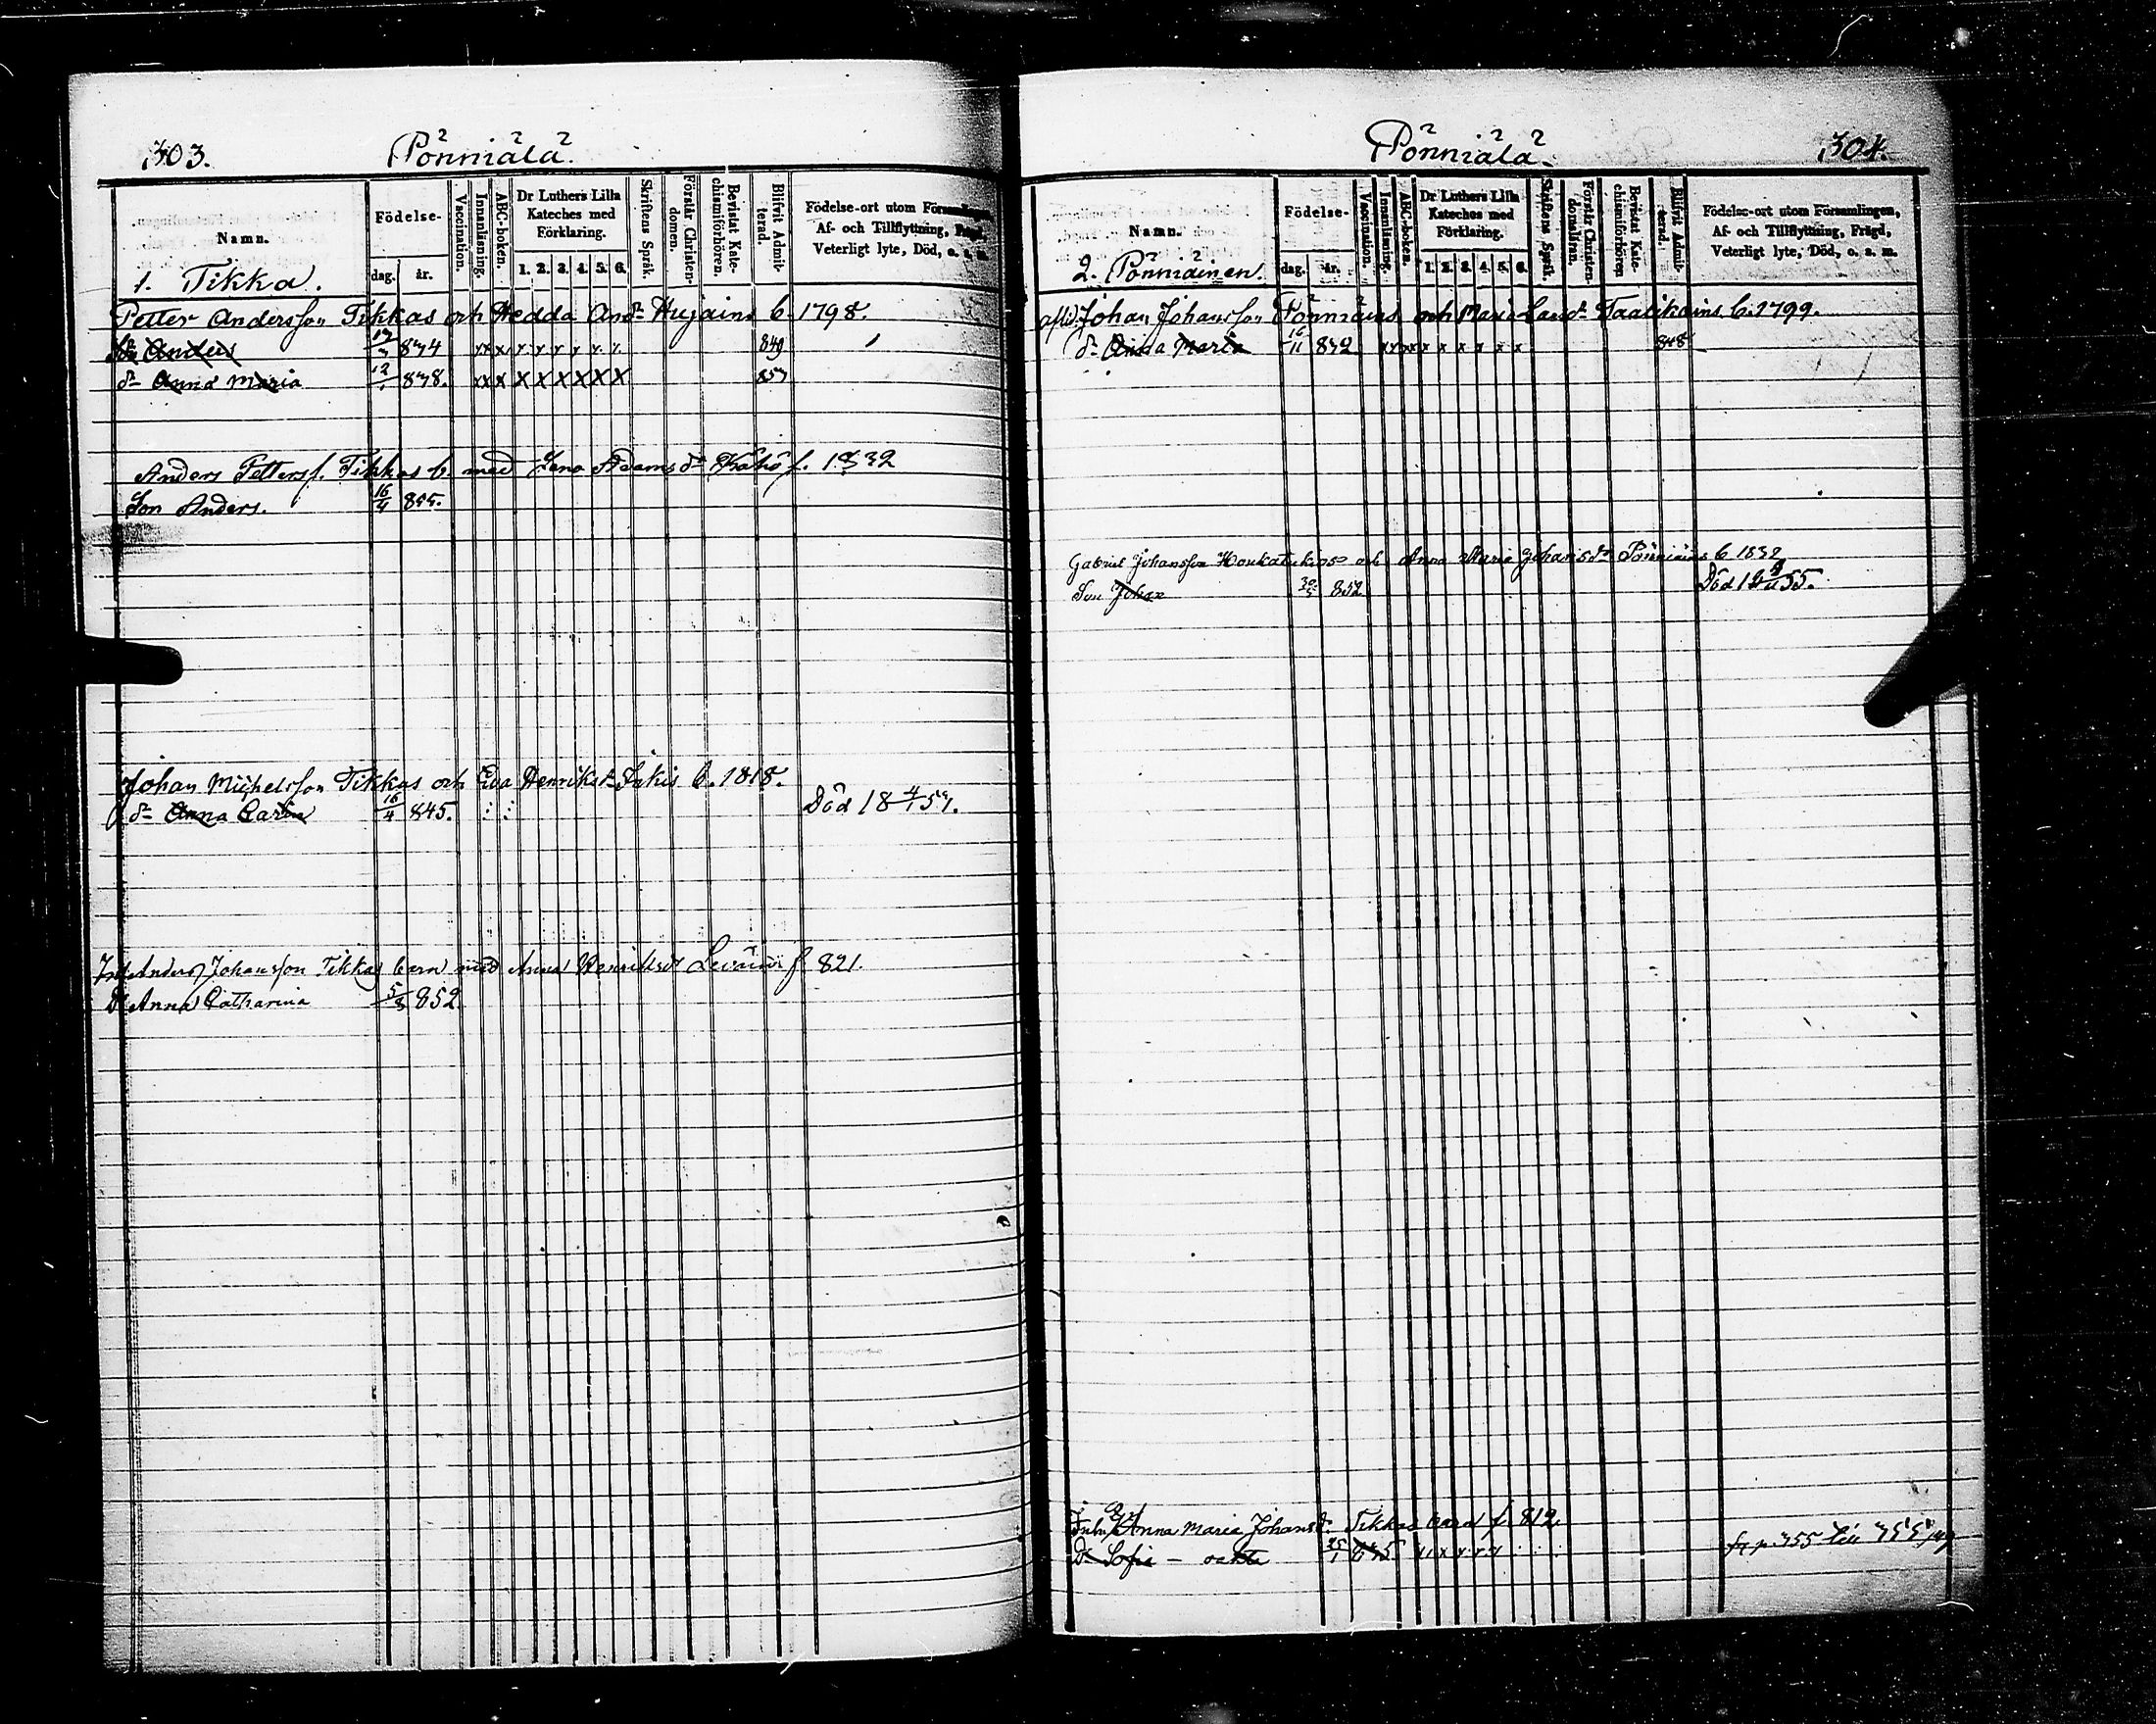 303.
Pönniälä.
Namn.
Födelse-
dag. år.
Vaccination.
Innanläsning.
ABC-boken.
Dr Luthers Lilla Kateches med Förklaring.
1. 2. 3. 4. 5. 6.
Skriftens Språk.
Förstår Christendomen.
Bevistat Katechismiförhören.
Blifvit Admitterad.
Födelse-ort utom Församlingen,
Af- och Tillflyttning, Frägd,
Veterligt lyte, Död, o. s. m.
1. Tikka.
Petter Andersson Tikkas och Hedda And:dr Hujains b. 1798.
Anders 834 x x x 849
dr Anna Maria 12/1 838. x x x x x x x x x 857
Anders Petters. Tikkas b. med Lena Adams dr f. 1832
Son Anders. 16/4 855.
Johan Michelsson Tikkas och Eva Henriksdr b. 1818.
dr Anna Carin 16/4 845. Död 18 4/1 57.
Anders Johansson Tikkas barn med Anna Henriksdr f 821.
dr Anna Catharina 5/8 852
304.
Pönniälä.
Namn.
Födelse-
dag. år.
Vaccination.
Innanläsning.
ABC-boken.
Dr Luthers Lilla Kateches med Förklaring.
1. 2. 3. 4. 5. 6.
Skriftens Språk.
Förstår Christendomsläran.
Bevistat Katechismiförhören
Blifvit Admitterad.
Födelse-ort utom Församlingen,
Af- och Tillflyttning, Frägd,
Veterligt lyte, Död, o. s. m.
2. Pönniäinen.
afled. Johan Johansson Pönniäins och Maria Taalikains b. 1799.
dr Anna Maria 16/11 832 x x x x x x x x x 848
Gabriel Johansson och Anna Maria Johansdr Pönniäins b 1832
Son Johan 30/5 852 Död 18 55.
Anna Maria Johansdr Tikkas barn f. 812
dr Sofia – oäkta 25/1 p. 355